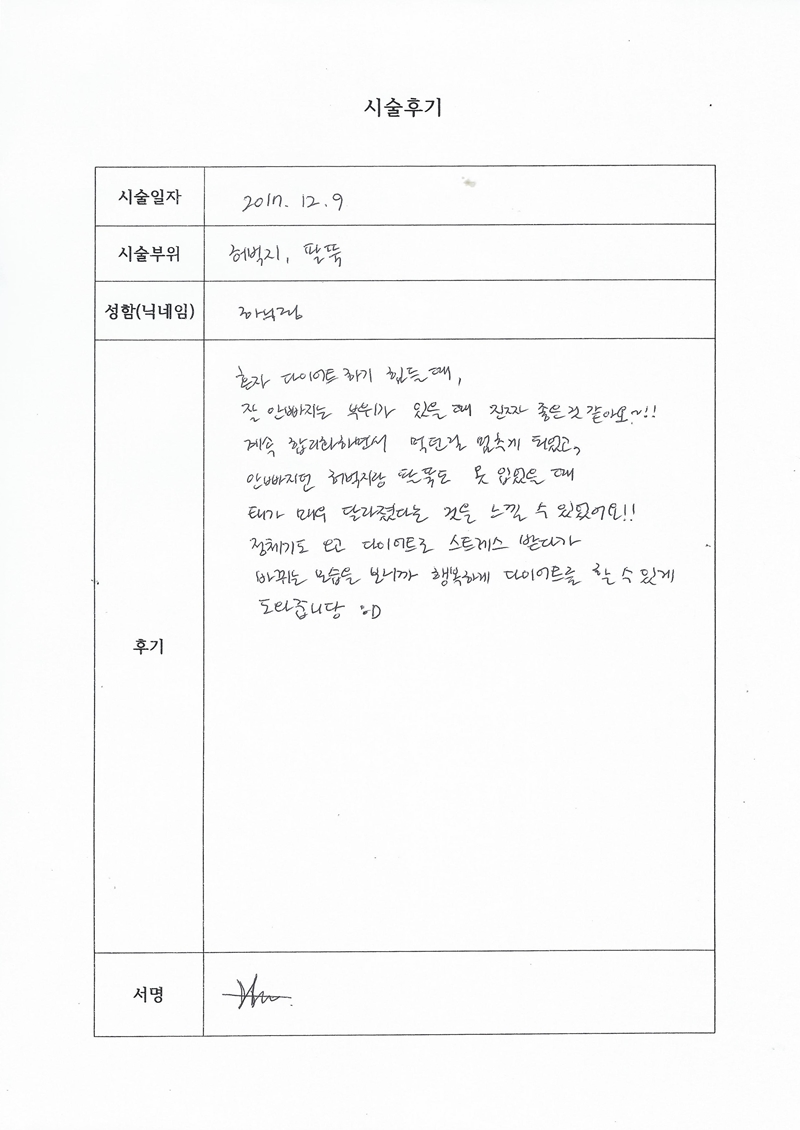 시술후기
시술일자 2017. 12. 9
시술부위 허벅지, 팔뚝
성함(닉네임)
후기
혼자 다이어트 하기 힘들때,
잘 안빠지는 부위가 있을 때 진짜 좋은것 같아요~!!
계속 합리화하면서 먹던걸 멈추게 되었고,
안빠지던 허벅지랑 팔뚝도 옷 입었을 때
태가 매우 달라졌다는 것을 느낄 수 있었어요!!
정체기도 오고 다이어트로 스트레스 받다가
바뀌는 모습을 보니까 행복하게 다이어트를 할 수 있게
도와줍니당 :D
서명